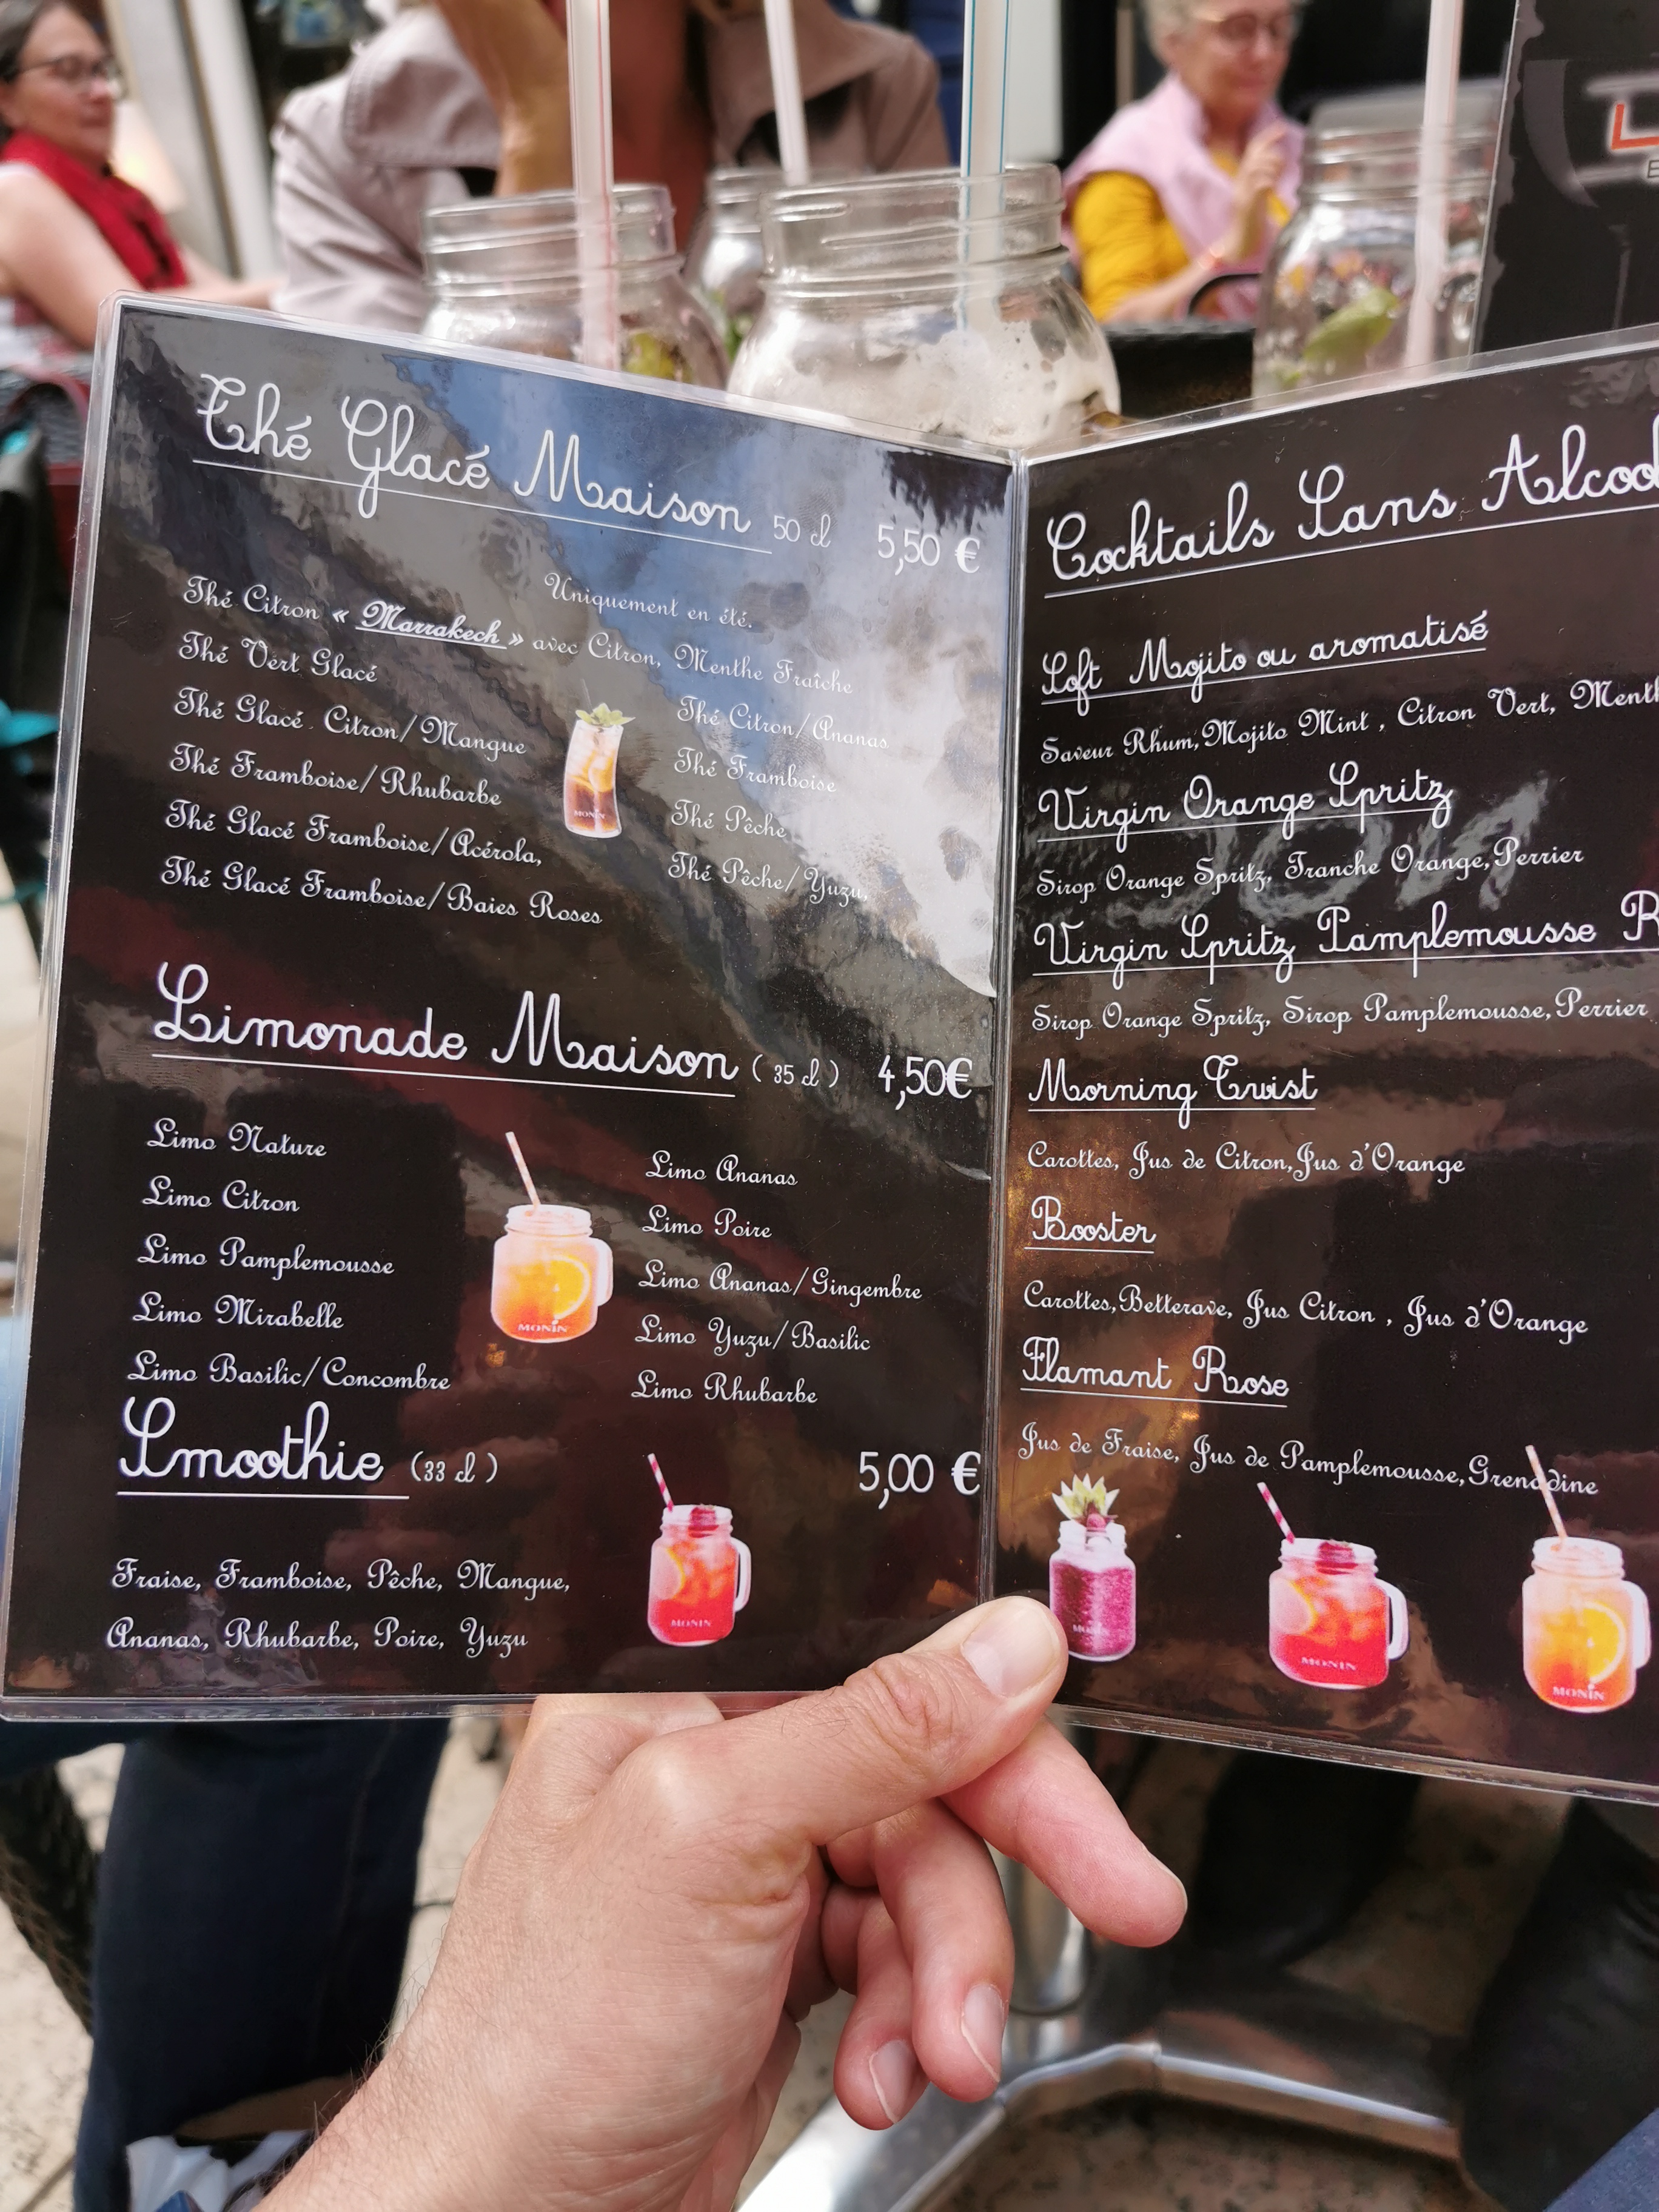 Thé Glacé Maison 50 cl 5,50 €
Uniquement en été.
Thé Citron « Marrakech » avec Citron, Menthe Fraîche
Thé Vert Glacé
Thé Glacé Citron/Mangue
Thé Framboise/Rhubarbe
Thé Glacé Framboise/Acérola,
Thé Glacé Framboise/Baies Roses
Thé Citron/Ananas
Thé Framboise
Thé Pêche
Thé Pêche/Yuzu,
MONIN
Limonade Maison ( 35 cl ) 4,50€
Limo Nature
Limo Citron
Limo Pamplemousse
Limo Mirabelle
Limo Basilic/Concombre
Limo Ananas
Limo Poire
Limo Ananas/Gingembre
Limo Yuzu/Basilic
Limo Rhubarbe
MONIN
Smoothie (33 cl ) 5,00 €
Fraise, Framboise, Pêche, Mangue,
Ananas, Rhubarbe, Poire, Yuzu
MONIN
Cocktails Sans Alcool
Soft Mojito ou aromatisé
Saveur Rhum, Mojito Mint , Citron Vert,
Virgin Orange Spritz
Sirop Orange Spritz, Tranche Orange,Perrier
Virgin Spritz Pamplemousse
Sirop Orange Spritz, Sirop Pamplemousse,Perrier
Morning Twist
Carottes, Jus de Citron,Jus d'Orange
Booster
Carottes,Betterave, Jus Citron , Jus d'Orange
Flamant Rose
Jus de Fraise, Jus de Pamplemousse,Grenadine
MONIN
MONIN
MONIN